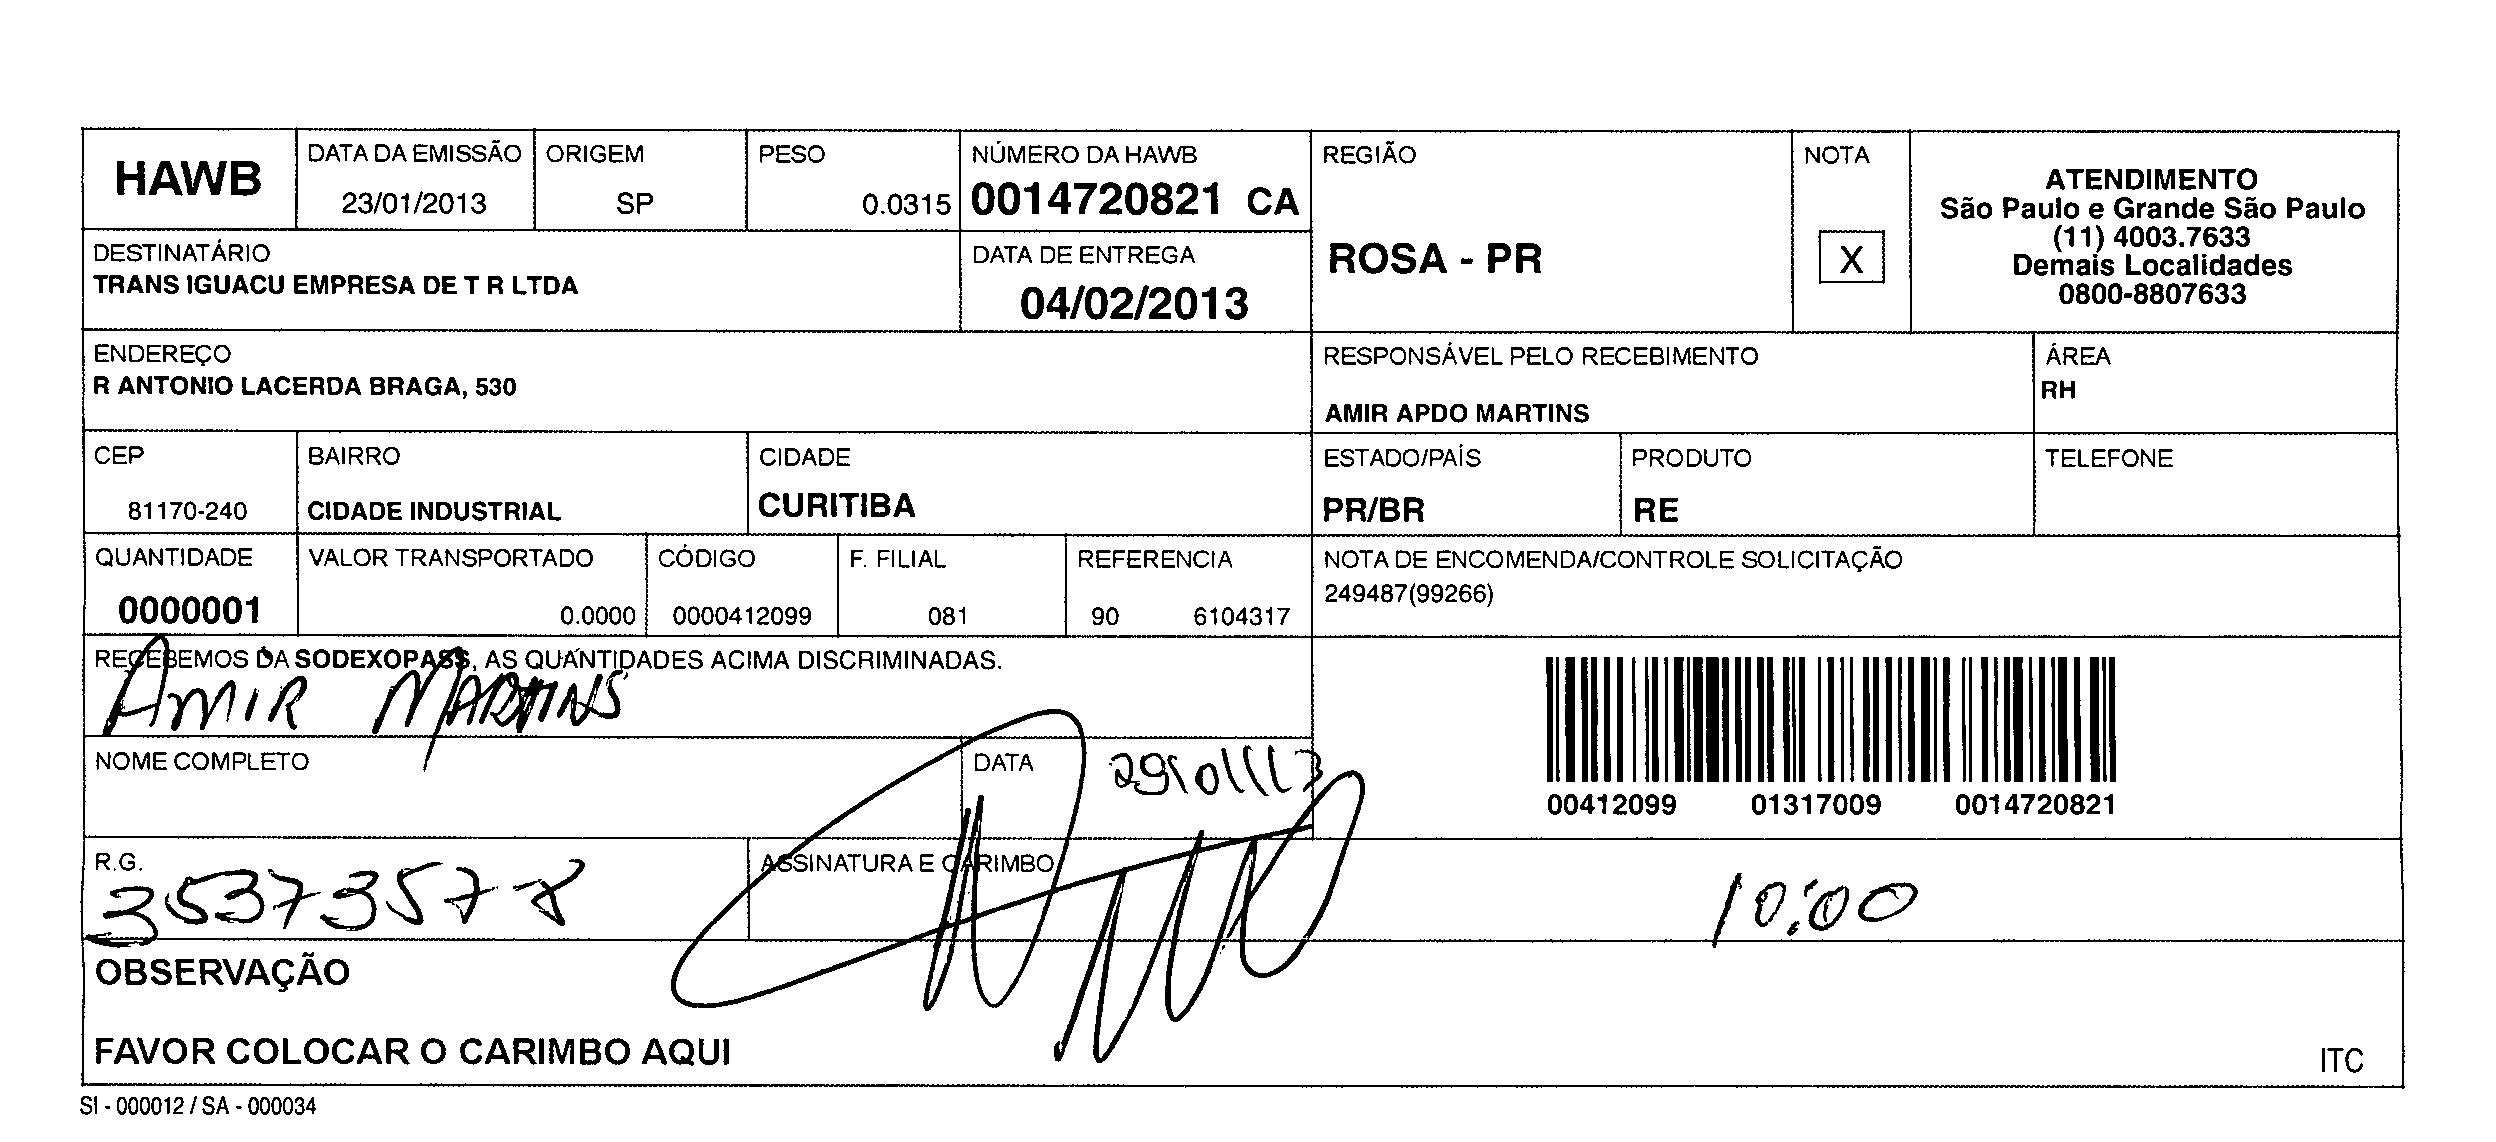 HAWB
DATA DA EMISSÃO
23/01/2013
ORIGEM
SP
PESO
0.0315
NÚMERO DA HAWB
0014720821 CA
REGIÃO
ROSA - PR
NOTA
X
ATENDIMENTO
São Paulo e Grande São Paulo
(11) 4003.7633
Demais Localidades
0800-8807633
DESTINATÁRIO
TRANS IGUACU EMPRESA DE T R LTDA
DATA DE ENTREGA
04/02/2013
ENDEREÇO
R ANTONIO LACERDA BRAGA, 530
RESPONSÁVEL PELO RECEBIMENTO
AMIR APDO MARTINS
ÁREA
RH
CEP
81170-240
BAIRRO
CIDADE INDUSTRIAL
CIDADE
CURITIBA
ESTADO/PAÍS
PR/BR
PRODUTO
RE
TELEFONE
QUANTIDADE
0000001
VALOR TRANSPORTADO
0.0000
CÓDIGO
0000412099
F. FILIAL
081
REFERENCIA
90 6104317
NOTA DE ENCOMENDA/CONTROLE SOLICITAÇÃO
249487(99266)
RECEBEMOS DA SODEXOPASS, AS QUANTIDADES ACIMA DISCRIMINADAS.
AMIR MARTINS
NOME COMPLETO
DATA
29/01/13
00412099 01317009 0014720821
R.G.
3537357-8
ASSINATURA E CARIMBO
10:00
OBSERVAÇÃO
FAVOR COLOCAR O CARIMBO AQUI
ITC
SI - 000012 / SA - 000034